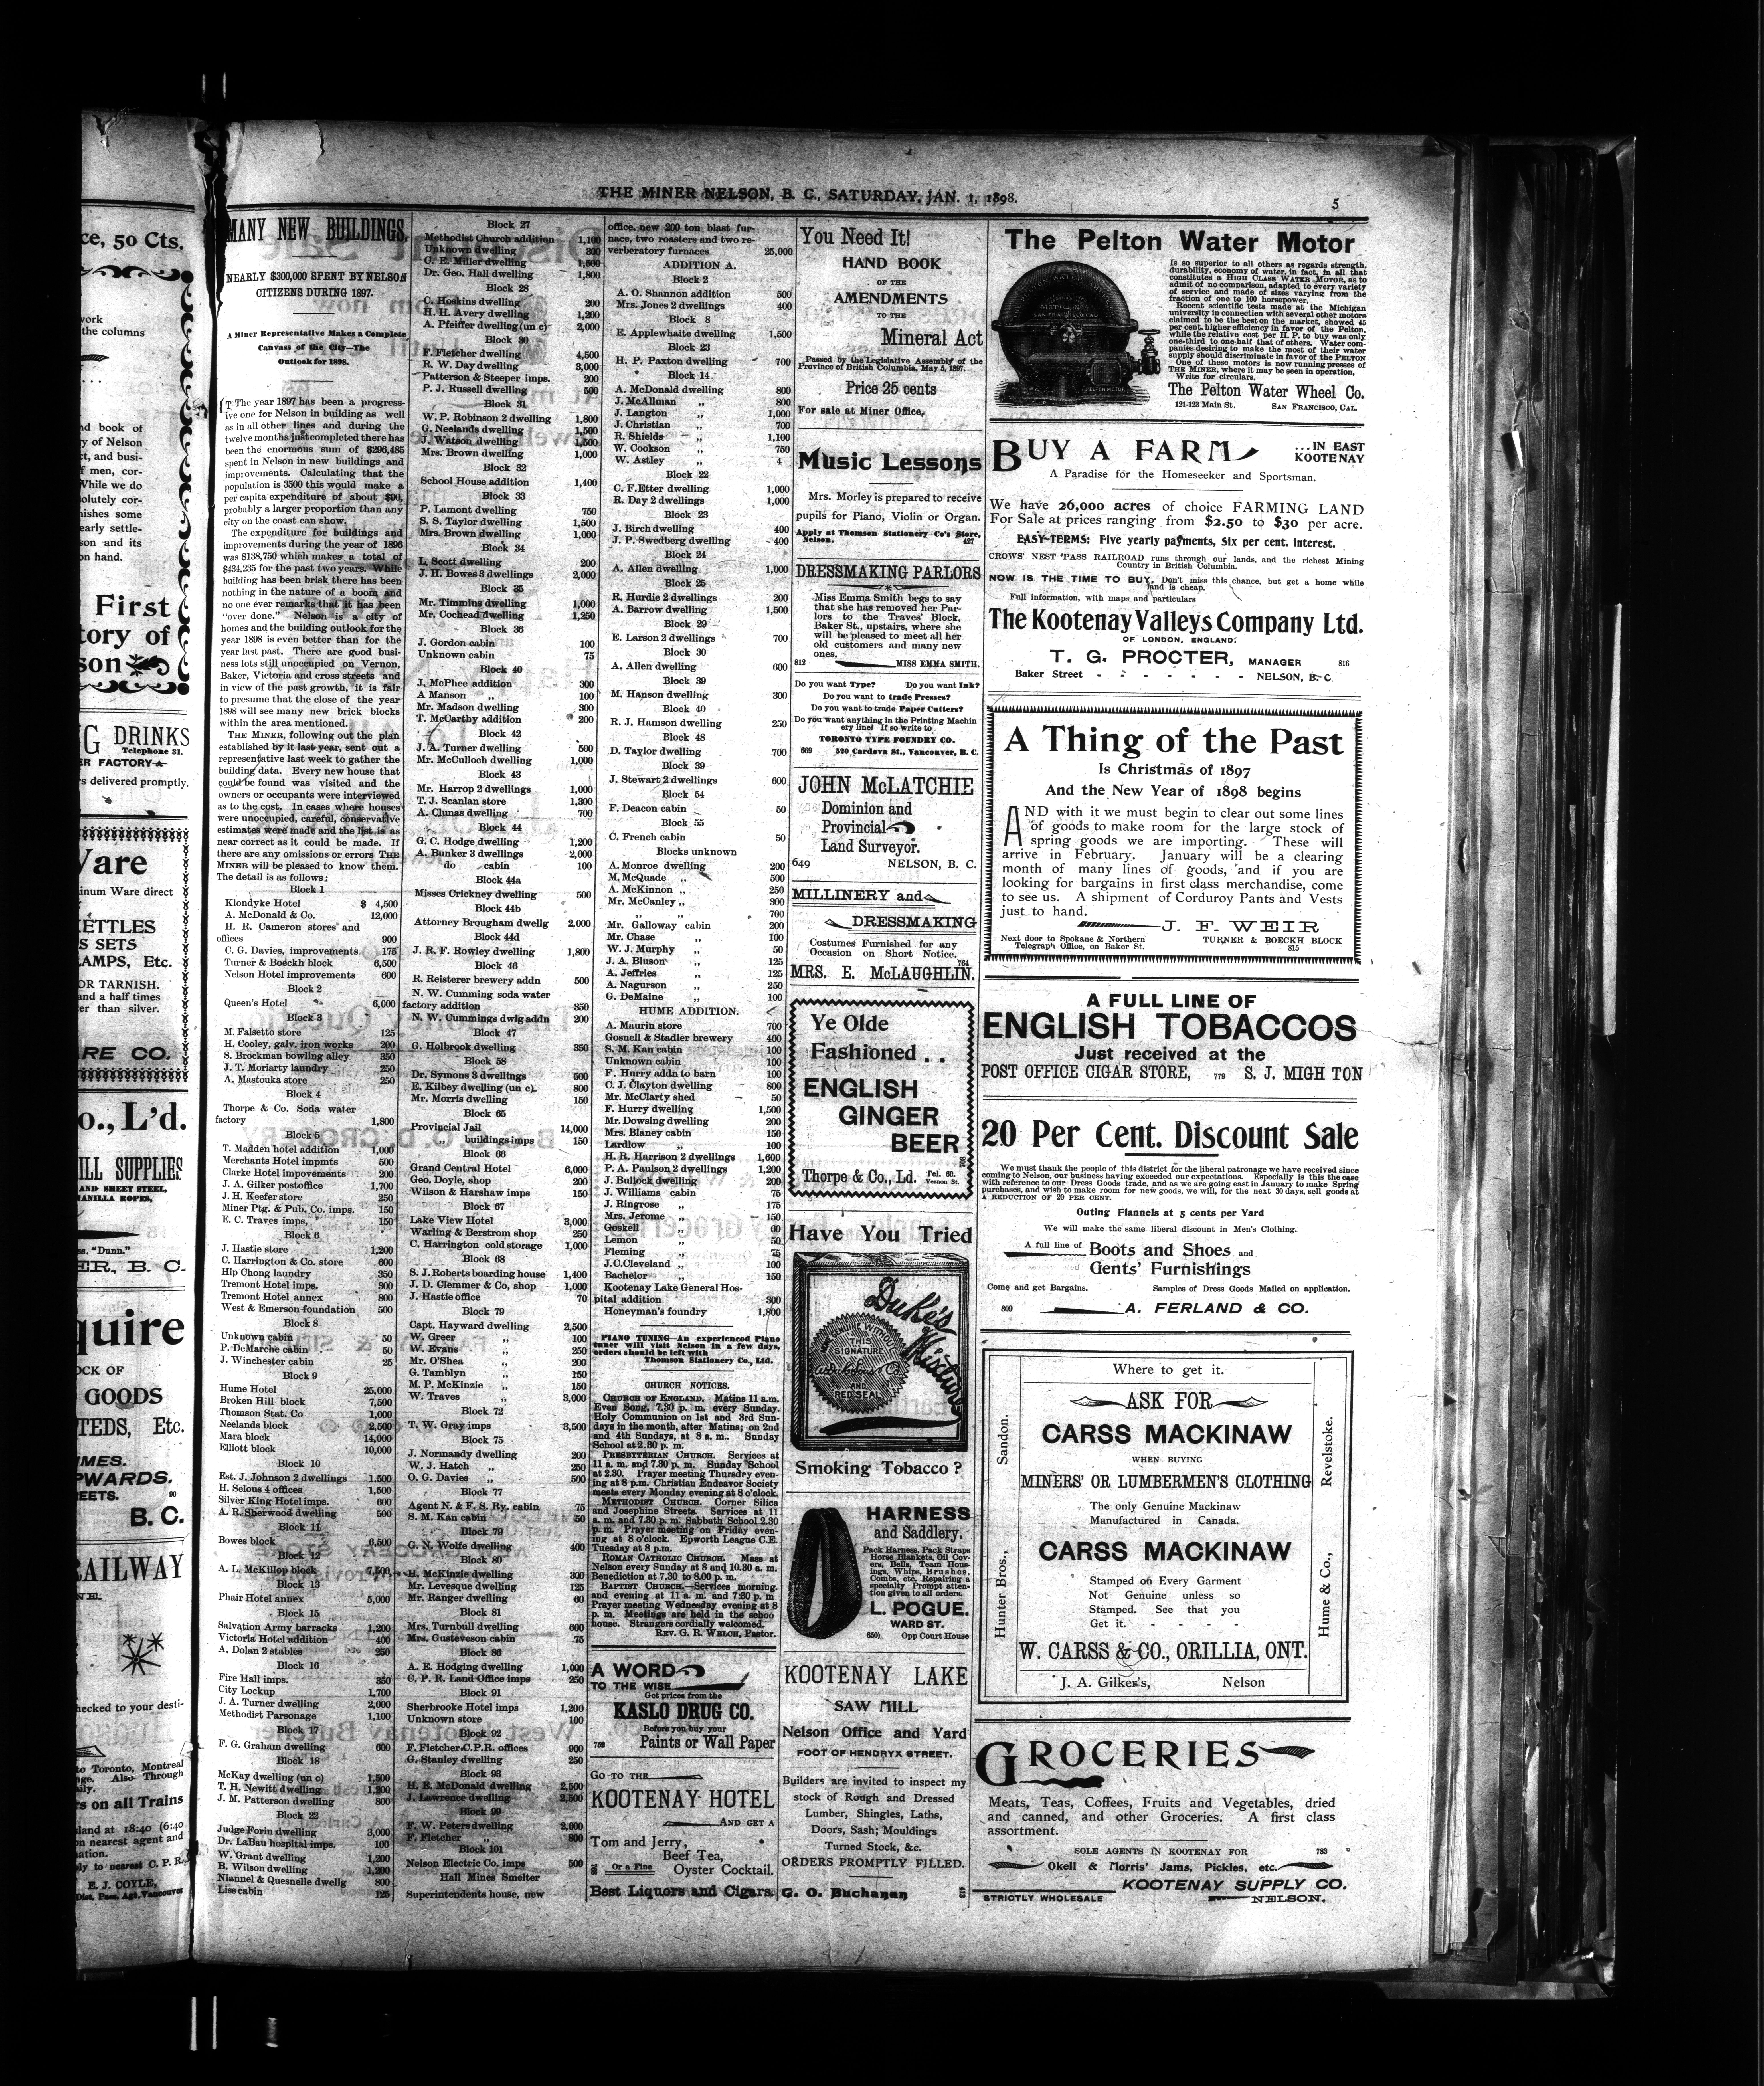 THE MINER NELSON, B. C., SATURDAY, JAN. 1, 1898.
5
ce, 50 Cts.
the columns
nd book of
of Nelson
and busi-
men, cor-
While we do
olutely cor-
ishes some
early settle-
son and its
on hand.
First
tory of
son
DRINKS
Telephone 31.
s delivered promptly.
inum Ware direct
KETTLES
S SETS
AMPS, Etc.
OR TARNISH.
and a half times
er than silver.
RE CO.
o., L'd.
ILL SUPPLIES
AND SHEET STEEL,
MANILLA ROPES,
"Dunn."
ER, B. C.
OCK OF
GOODS
TEDS, Etc.
B. C.
RAILWAY
hecked to your desti-
to Toronto, Montreal
Also Through
s on all Trains
and at 18:40 (6:40
n nearest agent and
ly to nearest C. P. R.
E. J. COYLE,
Dist. Pass. Agt, Vancouver
MANY NEW BUILDINGS.
NEARLY $300,000 SPENT BY NELSON
CITIZENS DURING 1897.
A Miner Representative Makes a Complete
Canvass of the City—The
Outlook for 1898.
The year 1897 has been a progress-
ive one for Nelson in building as well
as in all other lines and during the
twelve months just completed there has
been the enormous sum of $296,485
spent in Nelson in new buildings and
improvements. Calculating that the
population is 3500 this would make a
per capita expenditure of about $90,
probably a larger proportion than any
city on the coast can show.
The expenditure for buildings and
improvements during the year of 1896
was $138,750 which makes a total of
$434,235 for the past two years. While
building has been brisk there has been
nothing in the nature of a boom and
no one ever remarks that it has been
"over done." Nelson is a city of
homes and the building outlook for the
year 1898 is even better than for the
year last past. There are good busi-
ness lots still unoccupied on Vernon,
Baker, Victoria and cross streets and
in view of the past growth, it is fair
to presume that the close of the year
1898 will see many new brick blocks
within the area mentioned.
THE MINER, following out the plan
established by it last year, sent out a
representative last week to gather the
building data. Every new house that
could be found was visited and the
owners or occupants were interviewed
as to the cost. In cases where houses
were unoccupied, careful, conservative
estimates were made and the list is as
near correct as it could be made. If
there are any omissions or errors THE
MINER will be pleased to know them.
The detail is as follows:
Block 1
Klondyke Hotel $ 4,500
A. McDonald & Co. 12,000
H. R. Cameron stores and
offices 900
C. G. Davies, improvements 175
Turner & Boeckh block 6,500
Nelson Hotel improvements 600
Block 2
Queen's Hotel 6,000
Block 3
M. Falsetto store 125
H. Cooley, galv. iron works 200
S. Brockman bowling alley 350
J. T. Moriarty laundry 250
A. Mastouka store 250
Block 4
Thorpe & Co. Soda water
factory 1,800
Block 5
T. Madden hotel addition 1,000
Merchants Hotel impmts 500
Clarke Hotel impovements 200
J. A. Gilker postoffice 1,700
J. H. Keefer store 250
Miner Ptg. & Pub. Co. imps. 150
E. C. Traves imps. 150
Block 6
J. Hastie store 1,200
C. Harrington & Co. store 600
Hip Chong laundry 350
Tremont Hotel imps. 300
Tremont Hotel annex 800
West & Emerson foundation 500
Block 8
Unknown cabin 50
P. DeMarche cabin 50
J. Winchester cabin 25
Block 9
Hume Hotel 25,000
Broken Hill block 7,500
Thomson Stat. Co 1,000
Neelands block 2,500
Mara block 14,000
Elliott block 10,000
Block 10
Est. J. Johnson 2 dwellings 1,500
H. Selous 4 offices 1,500
Silver King Hotel imps. 600
A. R. Sherwood dwelling 500
Block 11
Bowes block 6,500
Block 12
A. L. McKillop block 7,500
Block 13
Phair Hotel annex 5,000
Block 15
Salvation Army barracks 1,200
Victoria Hotel addition 400
A. Dolan 2 stables 250
Block 16
Fire Hall imps. 350
City Lockup 1,700
J. A. Turner dwelling 2,000
Methodist Parsonage 1,100
Block 17
F. G. Graham dwelling 600
Block 18
McKay dwelling (un c) 1,500
T. H. Newitt dwelling 1,200
J. M. Patterson dwelling 800
Block 22
Judge Forin dwelling 3,000
Dr. LaBau hospital imps. 100
W. Grant dwelling 1,200
B. Wilson dwelling 1,200
Niannel & Quesnelle dwellg 800
Liss cabin 125
Block 27
Methodist Church addition 1,100
Unknown dwelling 300
C. E. Miller dwelling 1,500
Dr. Geo. Hall dwelling 1,800
Block 28
C. Hoskins dwelling 200
H. H. Avery dwelling 1,200
A. Pfeiffer dwelling (un c) 2,000
Block 30
F. Fletcher dwelling 4,500
R. W. Day dwelling 3,000
Patterson & Steeper imps. 200
P. J. Russell dwelling 500
Block 31
W. P. Robinson 2 dwelling 1,800
G. Neelands dwelling 1,500
J. Watson dwelling 1,500
Mrs. Brown dwelling 1,000
Block 32
School House addition 1,400
Block 33
P. Lamont dwelling 750
S. S. Taylor dwelling 1,500
Mrs. Brown dwelling 1,000
Block 34
L. Scott dwelling 200
J. H. Bowes 3 dwellings 2,000
Block 35
Mr. Timmins dwelling 1,000
Mr. Cochead dwelling 1,250
Block 36
J. Gordon cabin 100
Unknown cabin 75
Block 40
J. McPhee addition 300
A Manson ,, 100
Mr. Madson dwelling 300
T. McCarthy addition 200
Block 42
J. A. Turner dwelling 500
Mr. McCulloch dwelling 1,000
Block 43
Mr. Harrop 2 dwellings 1,000
T. J. Scanlan store 1,300
A. Clunas dwelling 700
Block 44
G. C. Hodge dwelling 1,200
A. Bunker 3 dwellings 2,000
do cabin 100
Block 44a
Misses Crickney dwelling 500
Block 44b
Attorney Brougham dwellg 2,000
Block 44d
J. R. F. Rowley dwelling 1,800
Block 46
R. Reisterer brewery addn 500
N. W. Cumming soda water
factory addition 350
N. W. Cummings dwlg addn 200
Block 47
G. Holbrook dwelling 350
Block 58
Dr. Symons 3 dwellings 500
E. Kilbey dwelling (un c). 800
Mr. Morris dwelling 150
Block 65
Provincial Jail 14,000
,, buildings imps 150
Block 66
Grand Central Hotel 6,000
Geo. Doyle, shop 200
Wilson & Harshaw imps 150
Block 67
Lake View Hotel 3,000
Warling & Berstrom shop 250
C. Harrington cold storage 1,000
Block 68
S. J. Roberts boarding house 1,400
J. D. Clemmer & Co, shop 1,000
J. Hastie office 70
Block 79
Capt. Hayward dwelling 2,500
W. Greer ,, 100
W. Evans ,, 250
Mr. O'Shea ,, 200
G. Tamblyn ,, 150
M. P. McKinzie ,, 150
W. Traves ,, 3,000
Block 72
T. W. Gray imps 3,500
Block 75
J. Normandy dwelling 200
W. J. Hatch ,, 250
O. G. Davies ,, 500
Block 77
Agent N. & F. S. Ry. cabin 75
S. M. Kan cabin 50
Block 79
G. N. Wolfe dwelling 400
Block 80
H. McKinzie dwelling 300
Mr. Levesque dwelling 125
Mr. Ranger dwelling 60
Block 81
Mrs. Turnbull dwelling 600
Mrs. Gusteveson cabin 75
Block 86
A. E. Hodging dwelling 1,000
C. P. R. Land Office imps 250
Block 91
Sherbrooke Hotel imps 1,200
Unknown store 100
Block 92
F. Fletcher C.P.R. offices 900
G. Stanley dwelling 250
Block 93
H. E. McDonald dwelling 2,500
J. Lawrence dwelling 2,500
Block 99
F. W. Peters dwelling 2,000
F. Fletcher ,, 800
Block 101
Nelson Electric Co. imps 500
Hall Mines Smelter
Superintendents house, new
office, new 200 ton blast fur-
nace, two roasters and two re-
verberatory furnaces 25,000
ADDITION A.
Block 2
A. O. Shannon addition 500
Mrs. Jones 2 dwellings 400
Block 8
E. Applewhaite dwelling 1,500
Block 23
H. P. Paxton dwelling 700
Block 14
A. McDonald dwelling 800
J. McAllman ,, 800
J. Langton ,, 1,000
J. Christian ,, 700
R. Shields ,, 1,100
W. Cookson ,, 750
W. Astley ,, 4
Block 22
C. F. Etter dwelling 1,000
R. Day 2 dwellings 1,000
Block 23
J. Birch dwelling 400
J. P. Swedberg dwelling 400
Block 24
A. Allen dwelling 1,000
Block 25
R. Hurdie 2 dwellings 200
A. Barrow dwelling 1,500
Block 29
E. Larson 2 dwellings 700
Block 30
A. Allen dwelling 600
Block 39
M. Hanson dwelling 300
Block 40
R. J. Hamson dwelling 250
Block 48
D. Taylor dwelling 700
Block 39
J. Stewart 2 dwellings 600
Block 54
F. Deacon cabin 50
Block 55
C. French cabin 50
Blocks unknown
A. Monroe dwelling 200
M. McQuade ,, 500
A. McKinnon ,, 250
Mr. McCanley ,, 300
,, ,, 700
Mr. Galloway cabin 200
Mr. Chase ,, 100
W. J. Murphy ,, 50
J. A. Bluson ,, 125
A. Jeffries ,, 125
A. Nagurson ,, 250
G. DeMaine ,, 100
HUME ADDITION.
A. Maurin store 700
Gosnell & Stadler brewery 400
S. M. Kan cabin 100
Unknown cabin 100
F. Hurry addn to barn 100
C. J. Clayton dwelling 800
Mr. McClarty shed 50
F. Hurry dwelling 1,500
Mr. Dowsing dwelling 200
Mrs. Blaney cabin 150
Lardlow ,, 100
H. R. Harrison 2 dwellings 1,600
P. A. Paulson 2 dwellings 1,200
J. Bullock dwelling 200
J. Williams cabin 75
J. Ringrose ,, 175
Mrs. Jerome ,, 150
Goskell ,, 60
Lemon ,, 50
Fleming ,, 75
J.C.Cleveland ,, 100
Bachelor ,, 150
Kootenay Lake General Hos-
pital addition 300
Honeyman's foundry 1,800
PIANO TUNING—An experienced Piano
tuner will visit Nelson in a few days,
orders should be left with
Thomson Stationery Co., Ltd.
CHURCH NOTICES.
CHURCH OF ENGLAND. Matins 11 a.m.
Even Song, 7.30 p. m. every Sunday.
Holy Communion on 1st and 3rd Sun-
days in the month, after Matins; on 2nd
and 4th Sundays, at 8 a. m.. Sunday
School at 2.30 p. m.
PRESBYTERIAN CHURCH. Services at
11 a. m. and 7.30 p. m. Sunday School
at 2.30. Prayer meeting Thursdry even-
ing at 8 p.m. Christian Endeavor Society
meets every Monday evening at 8 o'clock.
METHODIST CHURCH. Corner Silica
and Josephine Streets. Services at 11
a. m. and 7.30 p. m. Sabbath School 2.30
p. m. Prayer meeting on Friday even-
ing at 8 o'clock. Epworth League C.E.
Tuesday at 8 p.m.
ROMAN CATHOLIC CHURCH. Mass at
Nelson every Sunday at 8 and 10.30 a. m.
Benediction at 7.30 to 8.00 p. m.
BAPTIST CHURCH.—Services morning
and evening at 11 a. m. and 7:30 p. m
Prayer meeting Wednesday evening at 8
p. m. Meetings are held in the schoo
house. Strangers cordially welcomed.
REV. G. R. WELCH, Pastor.
A WORD
TO THE WISE
Get prices from the
KASLO DRUG CO.
Before you buy your
Paints or Wall Paper
GO TO THE
KOOTENAY HOTEL
AND GET A
Tom and Jerry,
Beef Tea,
Or a Fine Oyster Cocktail.
Best Liquors and Cigars.
You Need It!
HAND BOOK
OF THE
AMENDMENTS
TO THE
Mineral Act
Passed by the Legislative Assembly of the
Province of British Columbia, May 5, 1897.
Price 25 cents
For sale at Miner Office,
Music Lessons
Mrs. Morley is prepared to receive
pupils for Piano, Violin or Organ.
Apply at Thomson Stationery Co's Store,
Nelson. 427
DRESSMAKING PARLORS
Miss Emma Smith begs to say
that she has removed her Par-
lors to the Traves' Block,
Baker St., upstairs, where she
will be pleased to meet all her
old customers and many new
ones.
812 MISS EMMA SMITH.
Do you want Type? Do you want Ink?
Do you want to trade Presses?
Do you want to trade Paper Cutters?
Do you want anything in the Printing Machin
ery line? If so write to
TORONTO TYPE FOUNDRY CO.
669 520 Cardova St., Vancouver, B. C.
JOHN McLATCHIE
Dominion and
Provincial
Land Surveyor.
649 NELSON, B. C.
MILLINERY and
DRESSMAKING
Costumes Furnished for any
Occasion on Short Notice.
764
MRS. E. McLAUGHLIN.
Ye Olde
Fashioned . .
ENGLISH
GINGER
BEER
Thorpe & Co., Ld. Tel. 60. Vernon St.
Have You Tried
Duke's
Mixture
THIS
SIGNATURE
AND
RED SEAL
Smoking Tobacco?
HARNESS
and Saddlery.
Pack Harness, Pack Straps
Horse Blankets, Oil Cov-
ers, Bells, Team Hous-
ings, Whips, Brushes,
Combs, etc. Repairing a
specialty Prompt atten-
tion given to all orders.
L. POGUE.
WARD ST.
650) Opp Court House
KOOTENAY LAKE
SAW MILL
Nelson Office and Yard
FOOT OF HENDRYX STREET.
Builders are invited to inspect my
stock of Rough and Dressed
Lumber, Shingles, Laths,
Doors, Sash; Mouldings
Turned Stock, &c.
ORDERS PROMPTLY FILLED.
G. O. Buchanan
The Pelton Water Motor
Is so superior to all others as regards strength,
durability, economy of water, in fact, in all that
constitutes a HIGH CLASS WATER MOTOR, as to
admit of no comparison, adapted to every variety
of service and made of sizes varying from the
fraction of one to 100 horsepower.
Recent scientific tests made at the Michigan
university in connection with several other motors
claimed to be the best on the market, showed 45
per cent. higher efficiency in favor of the Pelton,
while the relative cost per H. P. to buy was only
one-third to one-half that of others. Water com-
panies desiring to make the most of their water
supply should discriminate in favor of the PELTON
One of these motors is now running presses of
THE MINER, where it may be seen in operation.
Write for circulars.
The Pelton Water Wheel Co.
121-123 Main St. SAN FRANCISCO, CAL.
BUY A FARM
...IN EAST
KOOTENAY
A Paradise for the Homeseeker and Sportsman.
We have 26,000 acres of choice FARMING LAND
For Sale at prices ranging from $2.50 to $30 per acre.
EASY TERMS: Five yearly payments, Six per cent. interest.
CROWS' NEST PASS RAILROAD runs through our lands, and the richest Mining
Country in British Columbia.
NOW IS THE TIME TO BUY. Don't miss this chance, but get a home while
land is cheap.
Full information, with maps and particulars
The Kootenay Valleys Company Ltd.
OF LONDON, ENGLAND.
T. G. PROCTER, MANAGER 816
Baker Street - - - - - - NELSON, B. C
A Thing of the Past
Is Christmas of 1897
And the New Year of 1898 begins
AND with it we must begin to clear out some lines
of goods to make room for the large stock of
spring goods we are importing. These will
arrive in February. January will be a clearing
month of many lines of goods, and if you are
looking for bargains in first class merchandise, come
to see us. A shipment of Corduroy Pants and Vests
just to hand.
J. F. WEIR
Next door to Spokane & Northern
Telegraph Office, on Baker St.
TURNER & BOECKH BLOCK
815
A FULL LINE OF
ENGLISH TOBACCOS
Just received at the
POST OFFICE CIGAR STORE, 779 S. J. MIGH TON
20 Per Cent. Discount Sale
We must thank the people of this district for the liberal patronage we have received since
coming to Nelson, our business having exceeded our expectations. Especially is this the case
with reference to our Dress Goods trade, and as we are going east in January to make Spring
purchases, and wish to make room for new goods, we will, for the next 30 days, sell goods at
A REDUCTION OF 20 PER CENT.
Outing Flannels at 5 cents per Yard
We will make the same liberal discount in Men's Clothing.
A full line of Boots and Shoes and
Gents' Furnishings
Come and get Bargains. Samples of Dress Goods Mailed on application.
809 A. FERLAND & CO.
Where to get it.
ASK FOR
CARSS MACKINAW
WHEN BUYING
MINERS' OR LUMBERMEN'S CLOTHING
The only Genuine Mackinaw
Manufactured in Canada.
CARSS MACKINAW
Stamped on Every Garment
Not Genuine unless so
Stamped. See that you
Get it. - - - -
W. CARSS & CO., ORILLIA, ONT.
J. A. Gilker's, Nelson
Hunter Bros., Sandon.
Hume & Co., Revelstoke.
GROCERIES
Meats, Teas, Coffees, Fruits and Vegetables, dried
and canned, and other Groceries. A first class
assortment.
SOLE AGENTS IN KOOTENAY FOR 783
Okell & Morris' Jams, Pickles, etc.
KOOTENAY SUPPLY CO.
STRICTLY WHOLESALE NELSON.